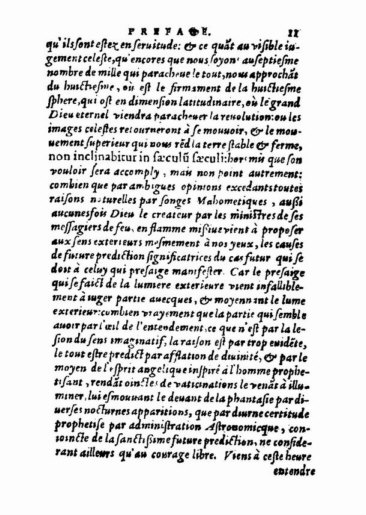 PREFACE. 11
qu'ils ont estez en seruitude: & ce quāt au visible iu-
gement celeste, qu'encores que nous soyons au septiesme
nombre de mille qui paracheue le tout, nous approchāt
du huictiesme, ou est le firmament de la huictiesme
sphere, qui est en dimension latitudinaire, ou le grand
Dieu eternel viendra paracheuer la reuolution: ou les
images celestes retourneront à se mouuoir, & le mou-
uement superieur qui nous rēd la terre stable & ferme,
non inclinabitur in sæculū sæculi: hormis que son
vouloir sera accomply, mais non point autrement:
combien que par ambigues opinions excedants toutes
raisons naturelles par songes Mahometiques, aussi
aucunes fois Dieu le createur par les ministres de ses
messagiers de feu, en flamme missiue vient à proposer
aux sens exterieurs mesmement à nos yeux, les causes
de future prediction significatrices du cas futur qui se
doit à celuy qui presaige manifester. Car le presaige
qui se faict de la lumiere exterieure vient infallible-
ment à iuger partie auecques, & moyennant le lume
exterieur: combien vrayement que la partie qui semble
auoir par l'œil de l'entendement, ce que n'est par la le-
sion du sens imaginatif, la raison est par trop euidēte,
le tout estre predict par afflation de diuinité, & par le
moyen de l'esprit angelique inspiré à l'homme prophe-
tisant, rendāt oinctes de vaticinations le venāt à illu-
miner, lui esmouuant le deuant de la phantasie par di-
uerses nocturnes apparitions, que par diurne certitude
prophetise par administration Astronomicque, con-
ioincte de la sanctissime future prediction, ne conside-
rant ailleurs qu'au courage libre. Viens à ceste heure
entendre